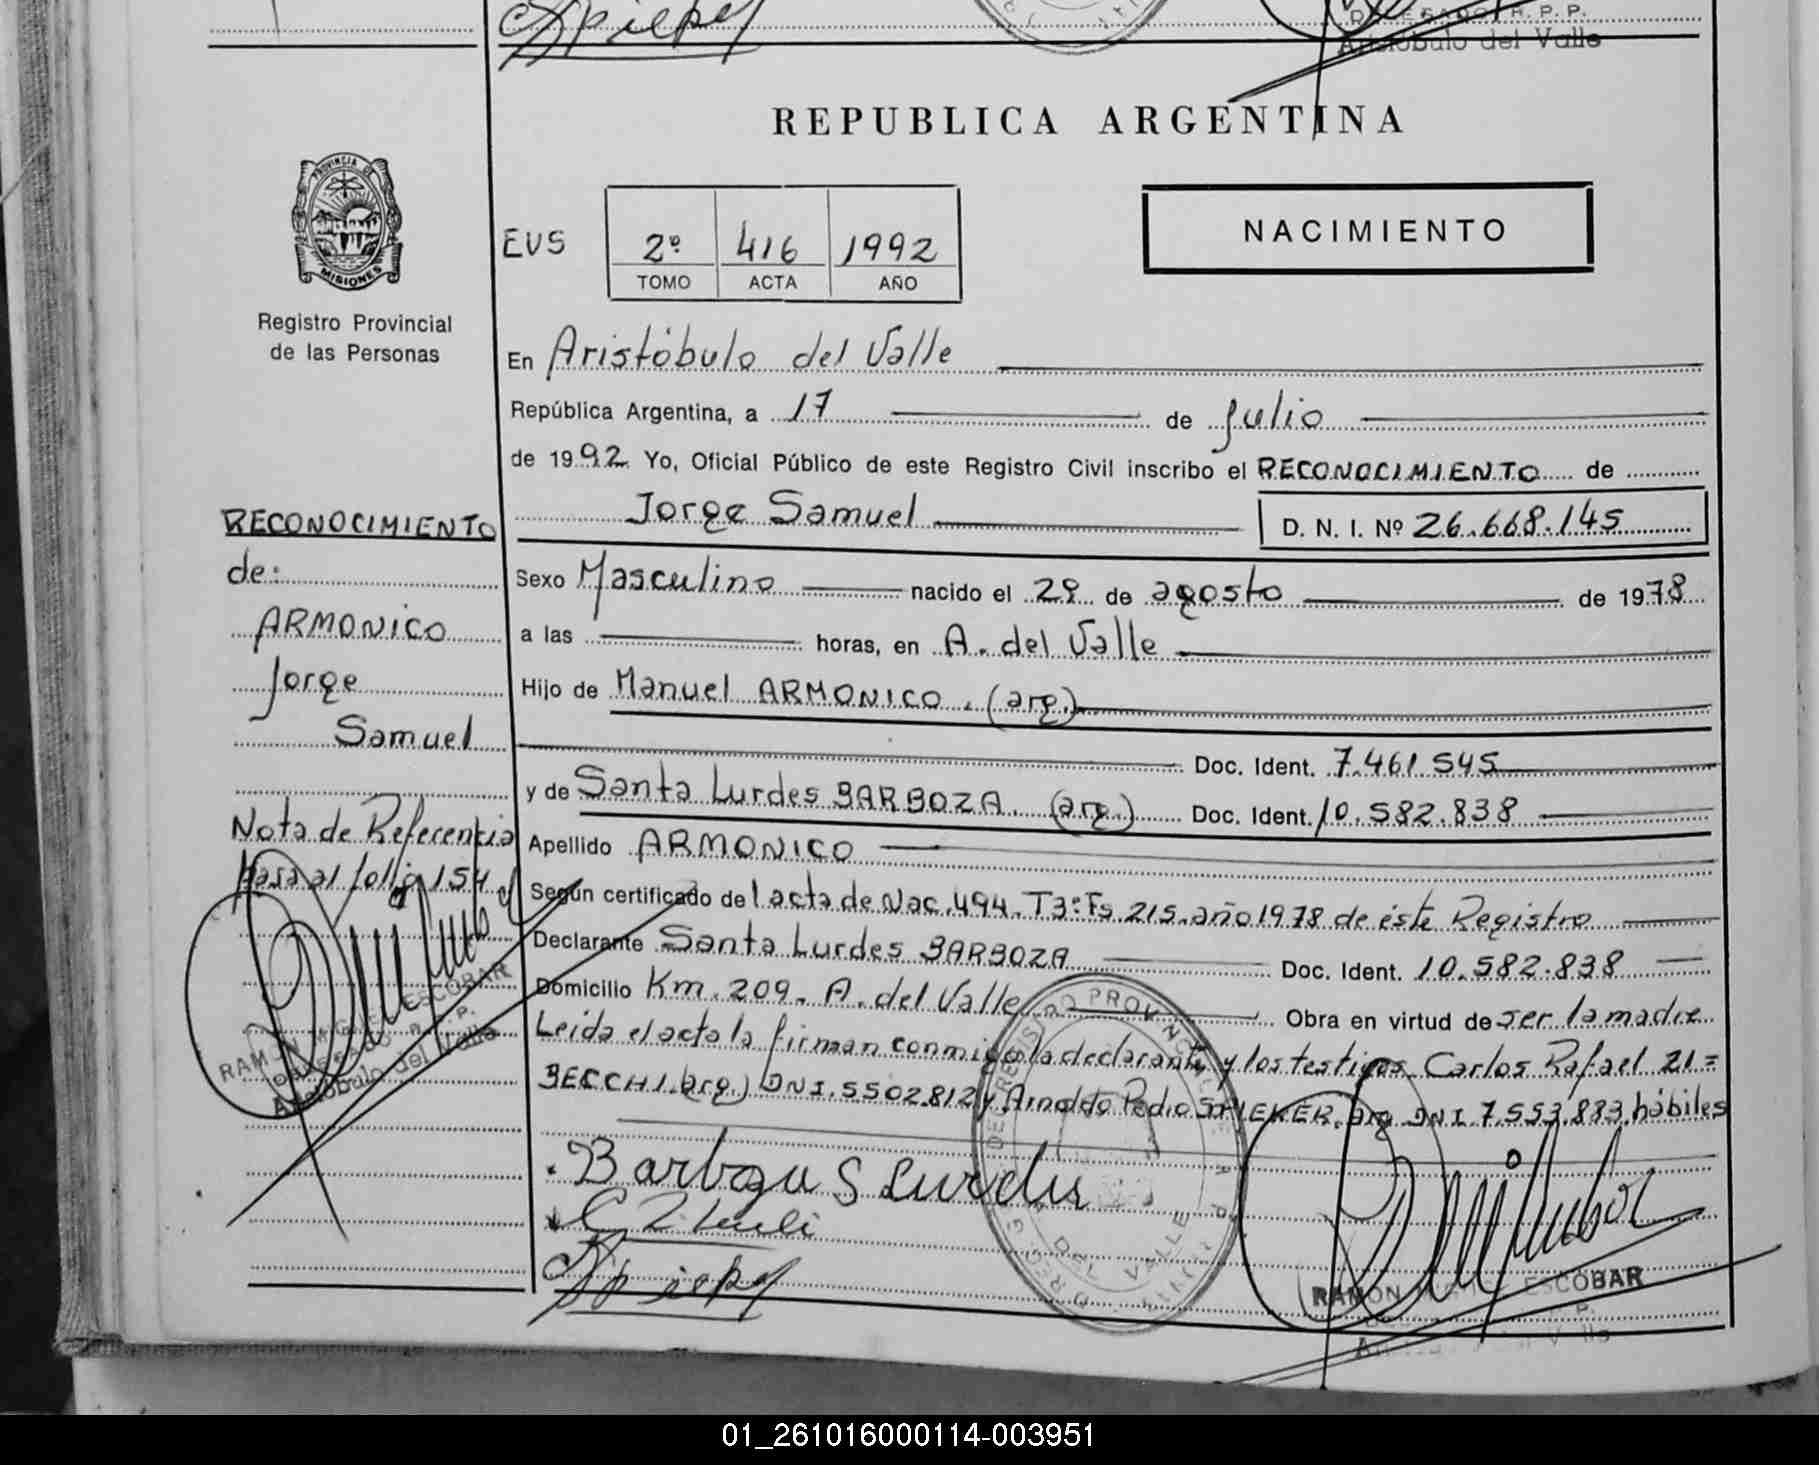 Aristóbulo del Valle
REPUBLICA ARGENTINA
PROVINCIA DE
MISIONES
Registro Provincial
de las Personas
EVS
2º 416 1992
TOMO ACTA AÑO
NACIMIENTO
En Aristóbulo del Valle
República Argentina, a 17 de Julio
de 1992 Yo, Oficial Público de este Registro Civil inscribo el RECONOCIMIENTO de
Jorge Samuel D. N. I. Nº 26.668.145
Sexo Masculino nacido el 29 de agosto de 1978
a las horas, en A. del Valle
Hijo de Manuel ARMONICO. (arg.)
Doc. Ident. 7.461.545
y de Santa Lurdes BARBOZA. (arg.) Doc. Ident. 10.582.838
Apellido ARMONICO
Según certificado del acta de Nac. 494. T3º Fs 215. año 1978 de éste Registro
Declarante Santa Lurdes BARBOZA Doc. Ident. 10.582.838
Domicilio Km. 209. A. del Valle Obra en virtud de ser la madre
Leída el acta la firman conmigo la declarante y los testigos Carlos Rafael ZI=
BECCHI (arg.) DNI. 5502812 y Arnoldo Pedro arg DNI 7.553.883 hábiles
RECONOCIMIENTO
de:
ARMONICO
Jorge
Samuel
Nota de Referencia
Pasa al folio 154
RAMON MIGUEL ESCOBAR
DELEGADO R. P. P.
Aristóbulo del Valle
Barboza S Lurdes
REGISTRO PROVINCIAL DE
DEL VALLE
RAMON MIGUEL ESCOBAR
01_261016000114-003951